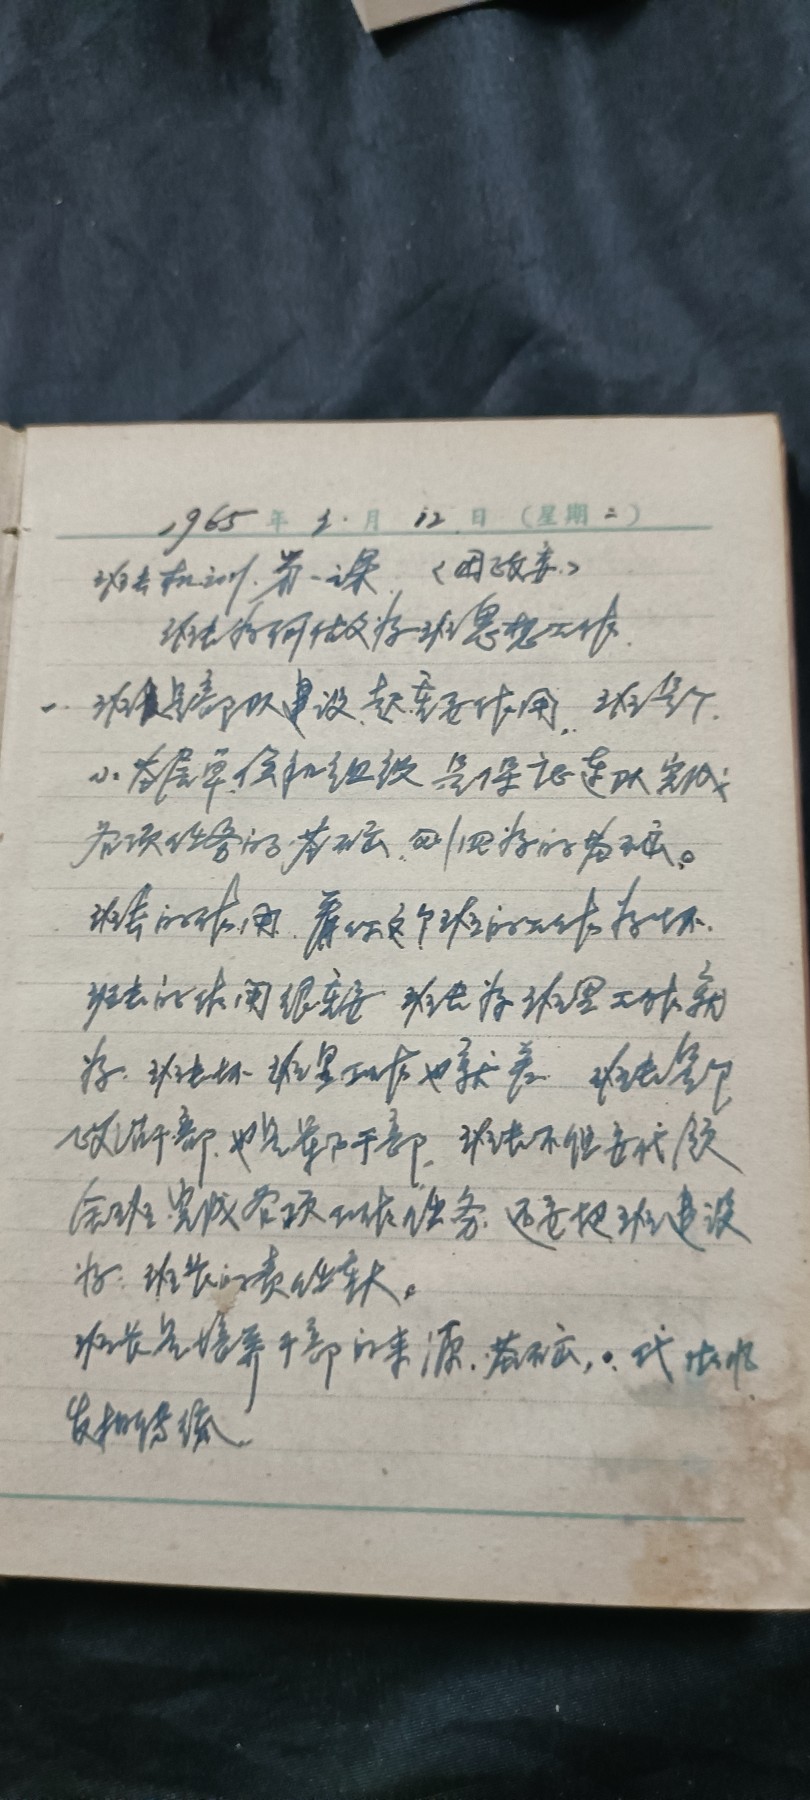 1965年1月12日（星期二）
班长集训.第一课.〈周政委.〉
班长如何做好班思想工作.
一. 班长是部队建设.起重要作用.. 班是个.
小.基层单位和组织 是保证连队完成
各项任务的.基础.
班长的作用.看你这个班的工作好坏.
班长的作用很重要 班长好班里工作就
好. 班长坏 班里工作也就差. 班长是即
政治干部.也是军事干部. 班长不但要代领
全班完成各项工作任务.还要把班建设
好. 班长的责任重大。
班长是培养干部的来源.基础.
发扬传统.